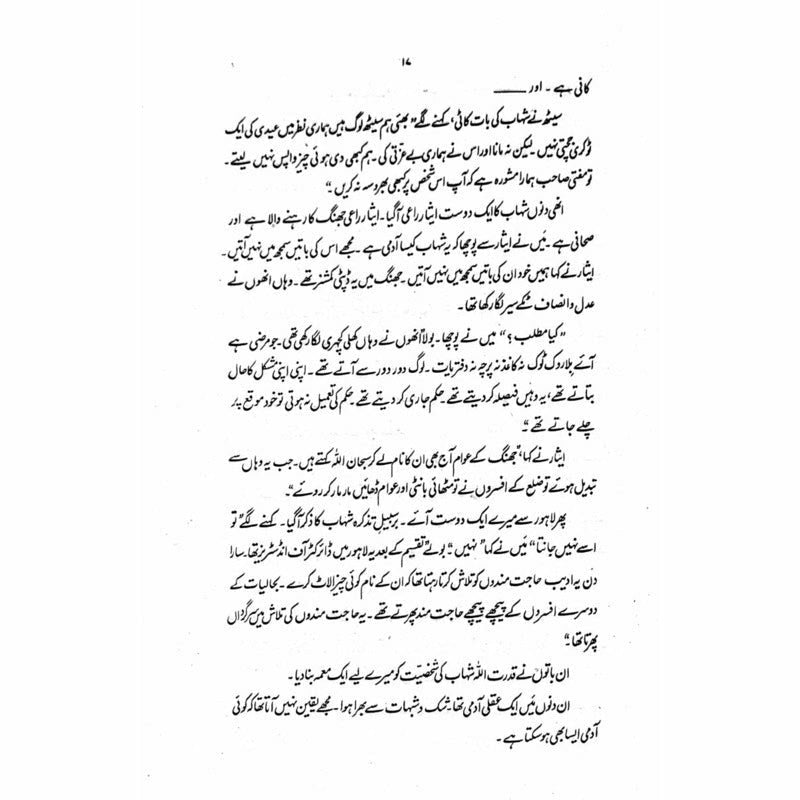 ۱۷
کافی ہے۔ اور ____
سیٹھ نے شہاب کی بات کاٹی، کہنے لگے” بھئی ہم سیٹھ لوگ ہیں ہماری نظر میں عیدی کی ایک
نوکری جچتی نہیں۔ لیکن نہ مانا اور اس نے ہماری بے عزتی کی۔ ہم کبھی دی ہوئی چیز واپس نہیں لیتے۔
تو مفتی صاحب ہمارا مشورہ ہے کہ آپ اس شخص پر کبھی بھروسہ نہ کریں۔“
انھی دنوں شہاب کا ایک دوست ایثار راعی آ گیا۔ ایثار راعی جھنگ کا رہنے والا ہے اور
صحافی ہے۔ میں نے ایثار سے پوچھا کہ یہ شہاب کیسا آدمی ہے۔ مجھے اس کی باتیں سمجھ میں نہیں آتیں۔
ایثار نے کہا ہمیں خود ان کی باتیں سمجھ میں نہیں آتیں۔ جھنگ میں یہ ڈپٹی کمشنر تھے۔ وہاں انھوں نے
عدل و انصاف ٹکے سیر لگا رکھا تھا۔
”کیا مطلب؟“ میں نے پوچھا۔ بولا انھوں نے وہاں کھلی کچہری لگا رکھی تھی۔ جو مرضی ہے
آئے بلا روک ٹوک نہ کاغذ نہ پرچہ نہ دفتریات۔ لوگ دور دور سے آتے تھے۔ اپنی اپنی مشکل کا حال
بتاتے تھے، یہ وہیں فیصلہ کر دیتے تھے۔ حکم جاری کر دیتے تھے۔ حکم کی تعمیل نہ ہوتی تو خود موقع پر
چلے جاتے تھے“
ایثار نے کہا، ”جھنگ کے عوام آج بھی ان کا نام لے کر سبحان اللہ کہتے ہیں۔ جب یہ وہاں سے
تبدیل ہوئے تو ضلع کے افسروں نے تو مٹھائی بانٹی اور عوام ڈھائیں مار مار کر روئے“۔
پھر لاہور سے میرے ایک دوست آئے۔ برسبیل تذکرہ شہاب کا ذکر آ گیا۔ کہنے لگے ”تو
اسے نہیں جانتا“ میں نے کہا ”نہیں“۔ بولے ”تقسیم کے بعد یہ لاہور میں ڈائرکٹر آف انڈسٹریز تھا۔ سارا
دن یہ ادیب حاجت مندوں کو تلاش کرتا رہتا تھا کہ ان کے نام کوئی چیز الاٹ کرے۔ بحالیات کے
دوسرے افسروں کے پیچھے پیچھے حاجت مند پھرتے تھے۔ یہ حاجت مندوں کی تلاش میں سرگرداں
پھرتا تھا“
ان باتوں نے قدرت اللہ شہاب کی شخصیت کو میرے لیے ایک معمہ بنا دیا۔
ان دنوں میں ایک عقلی آدمی تھا۔ شک و شبہات سے بھرا ہوا۔ مجھے یقین نہیں آتا تھا کہ کوئی
آدمی ایسا بھی ہو سکتا ہے۔